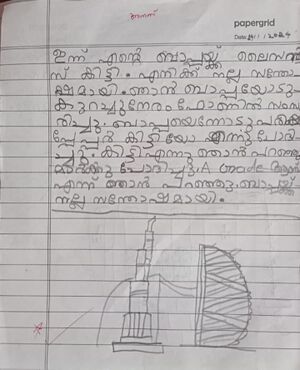 papergrid
Date: 24 / 1 / 2024
ഇന്ന് എന്റെ ബാപ്പയ്ക്ക് ലൈസൻ
സ് കിട്ടി. എനിക്ക് നല്ല സന്തോ
ഷമായി. ഞാൻ ബാപ്പയോടു
കുറച്ചുനേരം ഫോണിൽ സംസാ
രിച്ചു. ബാപ്പയെന്നോടു പരീക്ഷ
പ്പേപ്പർ കിട്ടിയോ എന്നു ചോദി
ച്ചു. കിട്ടി എന്നു ഞാൻ പറഞ്ഞു
മാർക്കു ചോദിച്ചു. A Grade
എന്ന് ഞാൻ പറഞ്ഞു. ബാപ്പയ്ക്ക്
നല്ല സന്തോഷമായി.